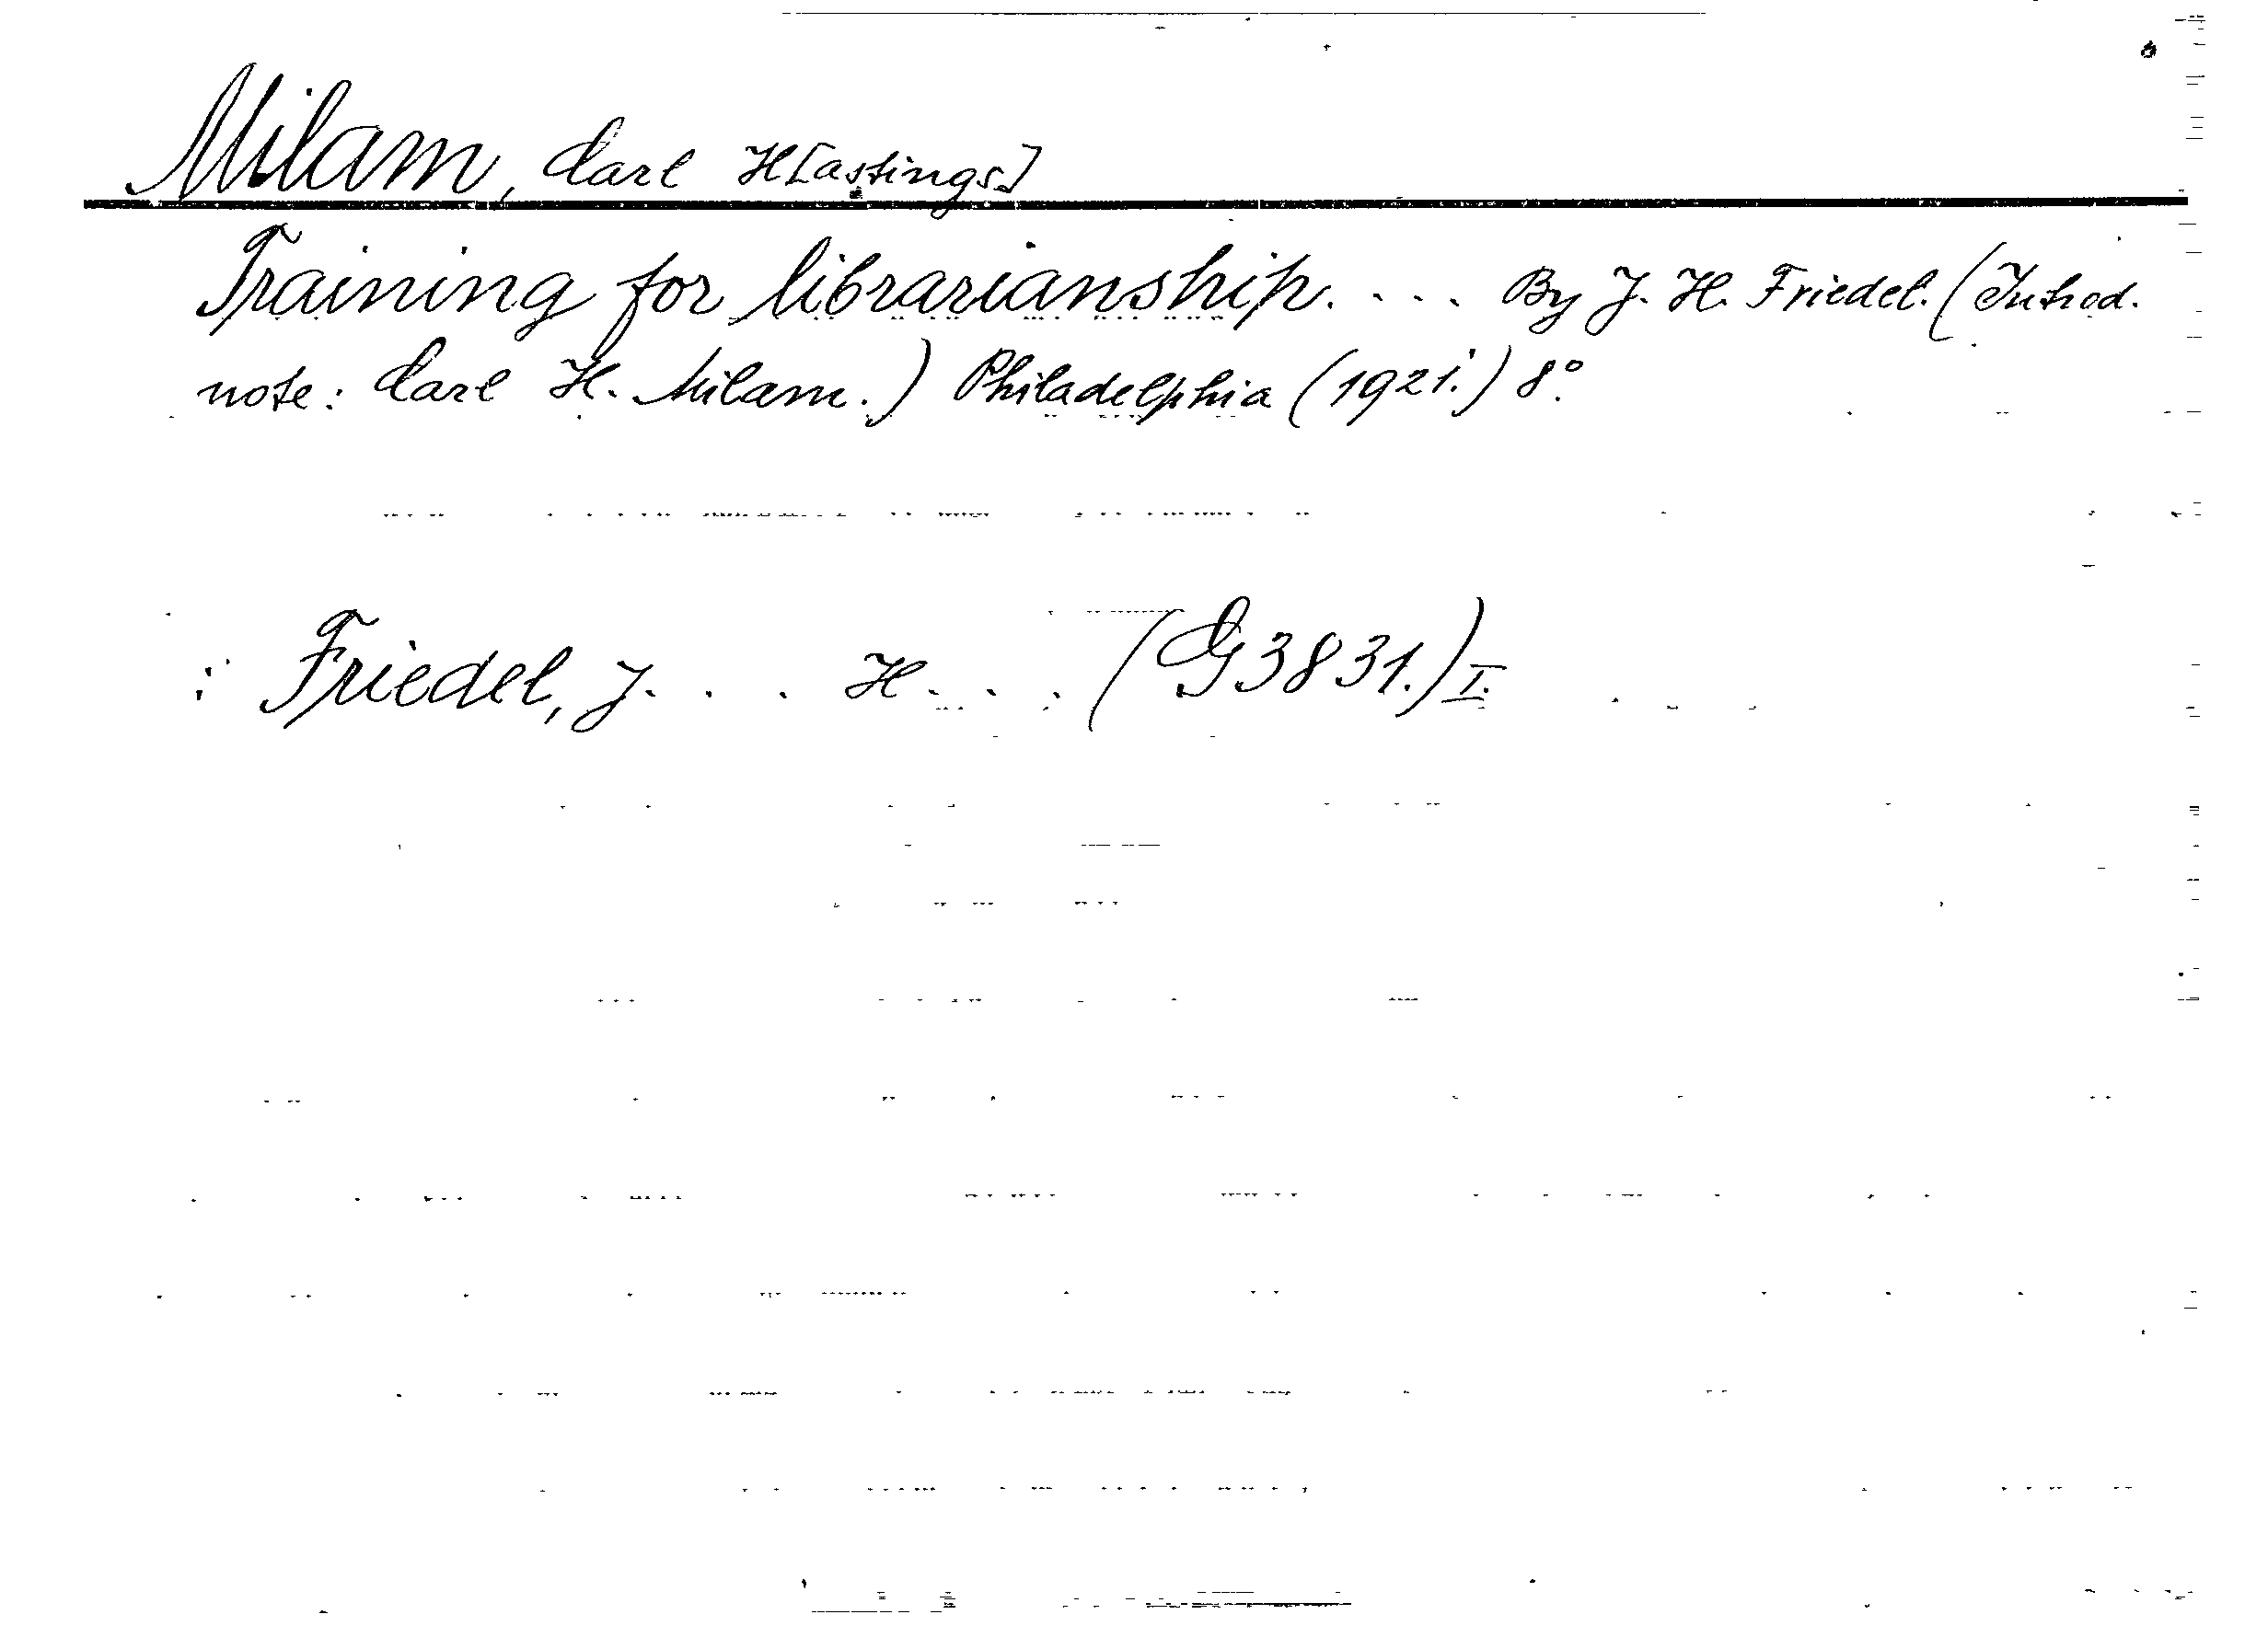 Milam, Carl H[astings]
Training for librarianship. ... By J. H. Friedel. (Introd.
note: Carl H. Milam.) Philadelphia (1921.) 8°.
: Friedel, J. . . H. . . (G3831.) I.